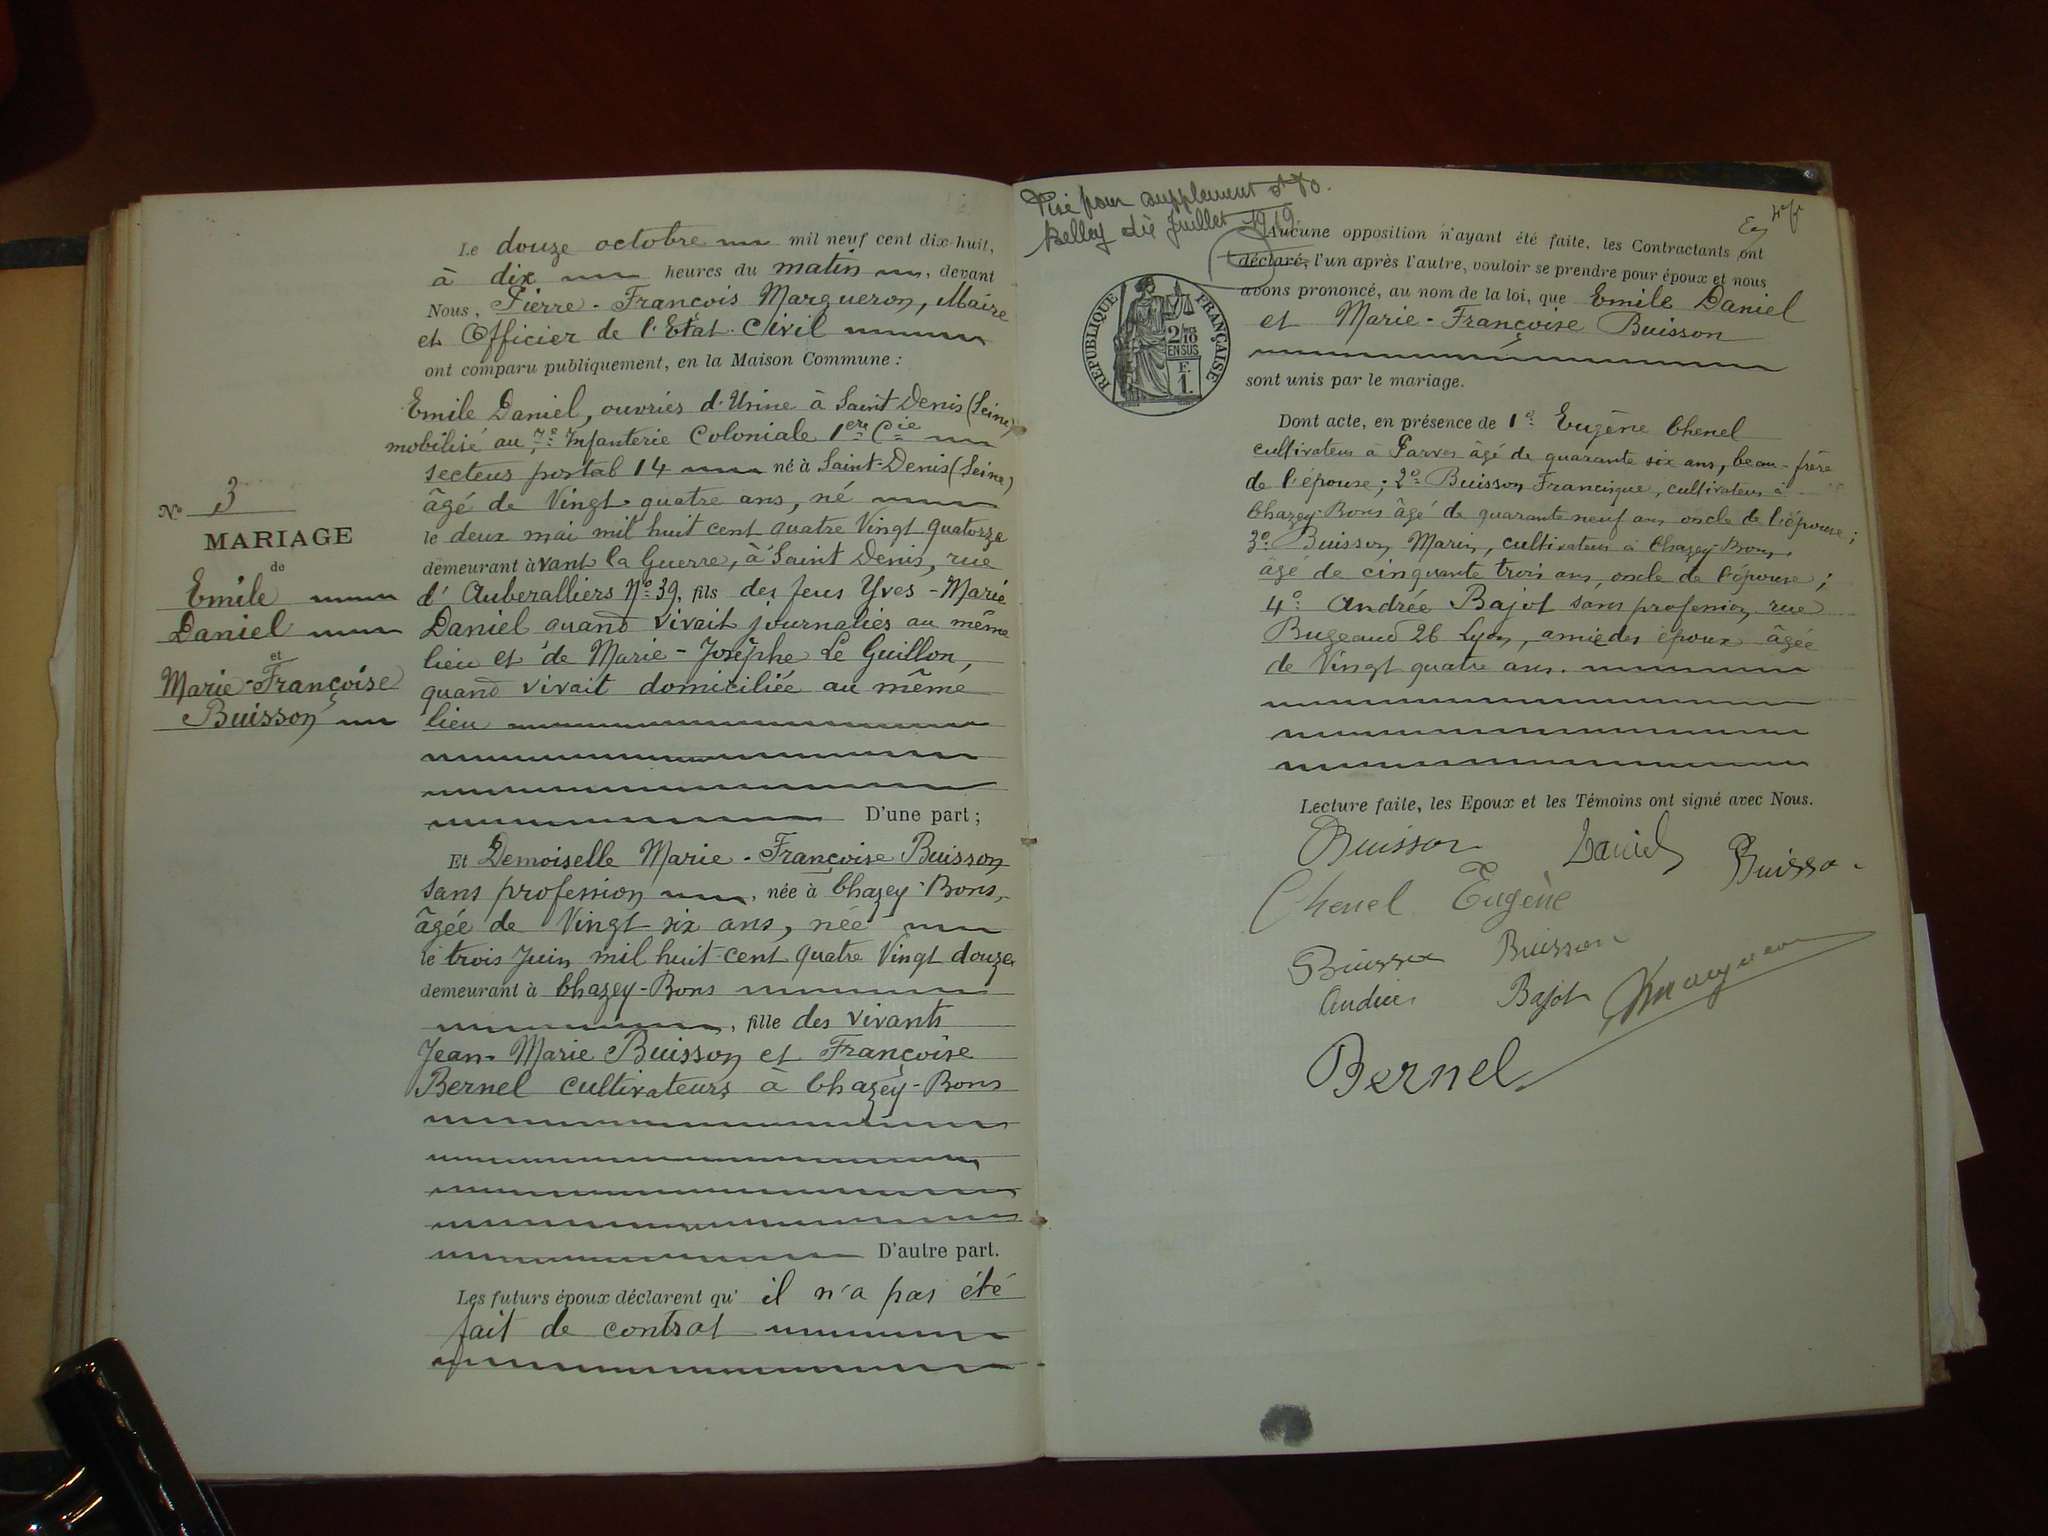 Le douze octobre mil neuf cent dix-huit,
à dix heures du matin, devant
Nous, Pierre-François Margueron, Maire
et Officier de l'Etat-Civil
ont comparu publiquement, en la Maison Commune :
Emile Daniel, ouvrier d'Usine à Saint Denis (Seine)
mobilisé au 7e Infanterie Coloniale 1ere Cie
secteur postal 14 né à Saint-Denis (Seine)
âgé de Vingt quatre ans, né
le deux mai mil huit cent quatre Vingt quatorze
demeurant avant la Guerre, à Saint Denis, rue
d'Auberalliers No 39, fils des feus Yves-Marie
Daniel quand vivait journalier au même
lieu et de Marie-Josèphe Le Guillon,
quand vivait domiciliée au même
lieu
D'une part ;
Et Demoiselle Marie-Françoise Buisson
sans profession, née à Chazey-Bons,
âgée de Vingt six ans, née
le trois Juin mil huit cent quatre Vingt douze
demeurant à Chazey-Bons
, fille des vivants
Jean-Marie Buisson et Françoise
Bernel cultivateurs à Chazey-Bons
D'autre part.
Les futurs époux déclarent qu' il n'a pas été
fait de contrat
No 3
MARIAGE
de
Emile
Daniel
et
Marie-Françoise
Buisson
Visé pour supplement
Belley dix Juillet 1919
Aucune opposition n'ayant été faite, les Contractants ont
déclaré, l'un après l'autre, vouloir se prendre pour époux et nous
avons prononcé, au nom de la loi, que Emile Daniel
et Marie-Françoise Buisson
sont unis par le mariage.
REPUBLIQUE FRANÇAISE
2/10
EN SUS
F.
1.
Dont acte, en présence de 1o Eugène Chenel
cultivateur à Parves âgé de quarante six ans, beau-frère
de l'épouse ; 2o Buisson Francisque, cultivateur à
Chazey-Bons âgé de quarante neuf ans oncle de l'épouse ;
3o Buisson Marin, cultivateur à Chazey-Bons,
âgé de cinquante trois ans, oncle de l'épouse ;
4o Andrée Bajot sans profession rue
Bugeaud 26 Lyon, amie des époux âgée
de Vingt quatre ans.
Lecture faite, les Epoux et les Témoins ont signé avec Nous.
Buisson Daniel Buisson
Chenel Eugène
Buisson Buisson
Andrée Bajot Margueron
Bernel